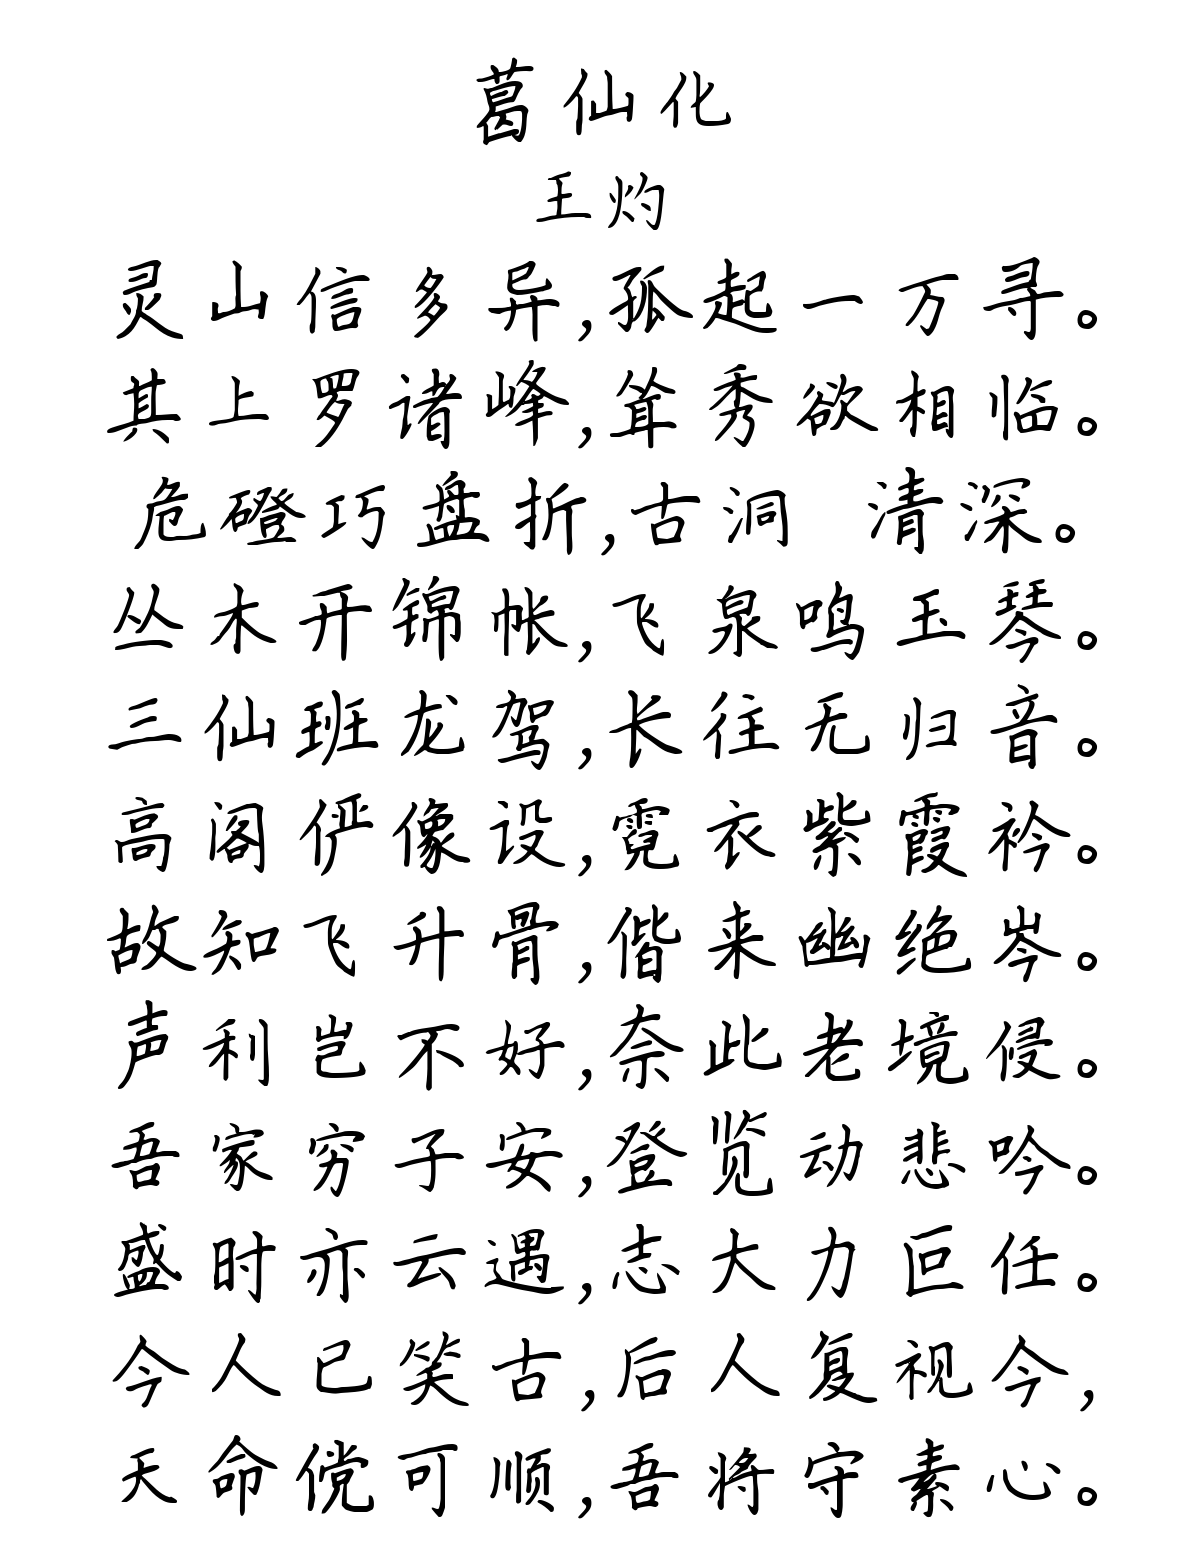 葛仙化
王灼
灵山信多异,孤起一万寻。
其上罗诸峰,耸秀欲相临。
危磴巧盘折,古洞 清深。
丛木开锦帐,飞泉鸣玉琴。
三仙班龙驾,长往无归音。
高阁俨像设,霓衣紫霞衿。
故知飞升骨,偕来幽绝岑。
声利岂不好,奈此老境侵。
吾家穷子安,登览动悲吟。
盛时亦云遇,志大力叵任。
今人已笑古,后人复视今,
天命傥可顺,吾将守素心。